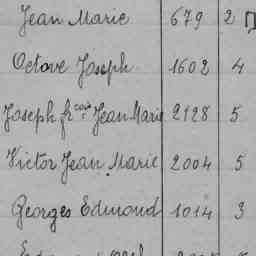 Jean Marie 679 2
Octave Joseph 1602 4
Joseph fr.çois Jean Marie 2128 5
Victor Jean Marie 2004 5
Georges Edmond 1014 3